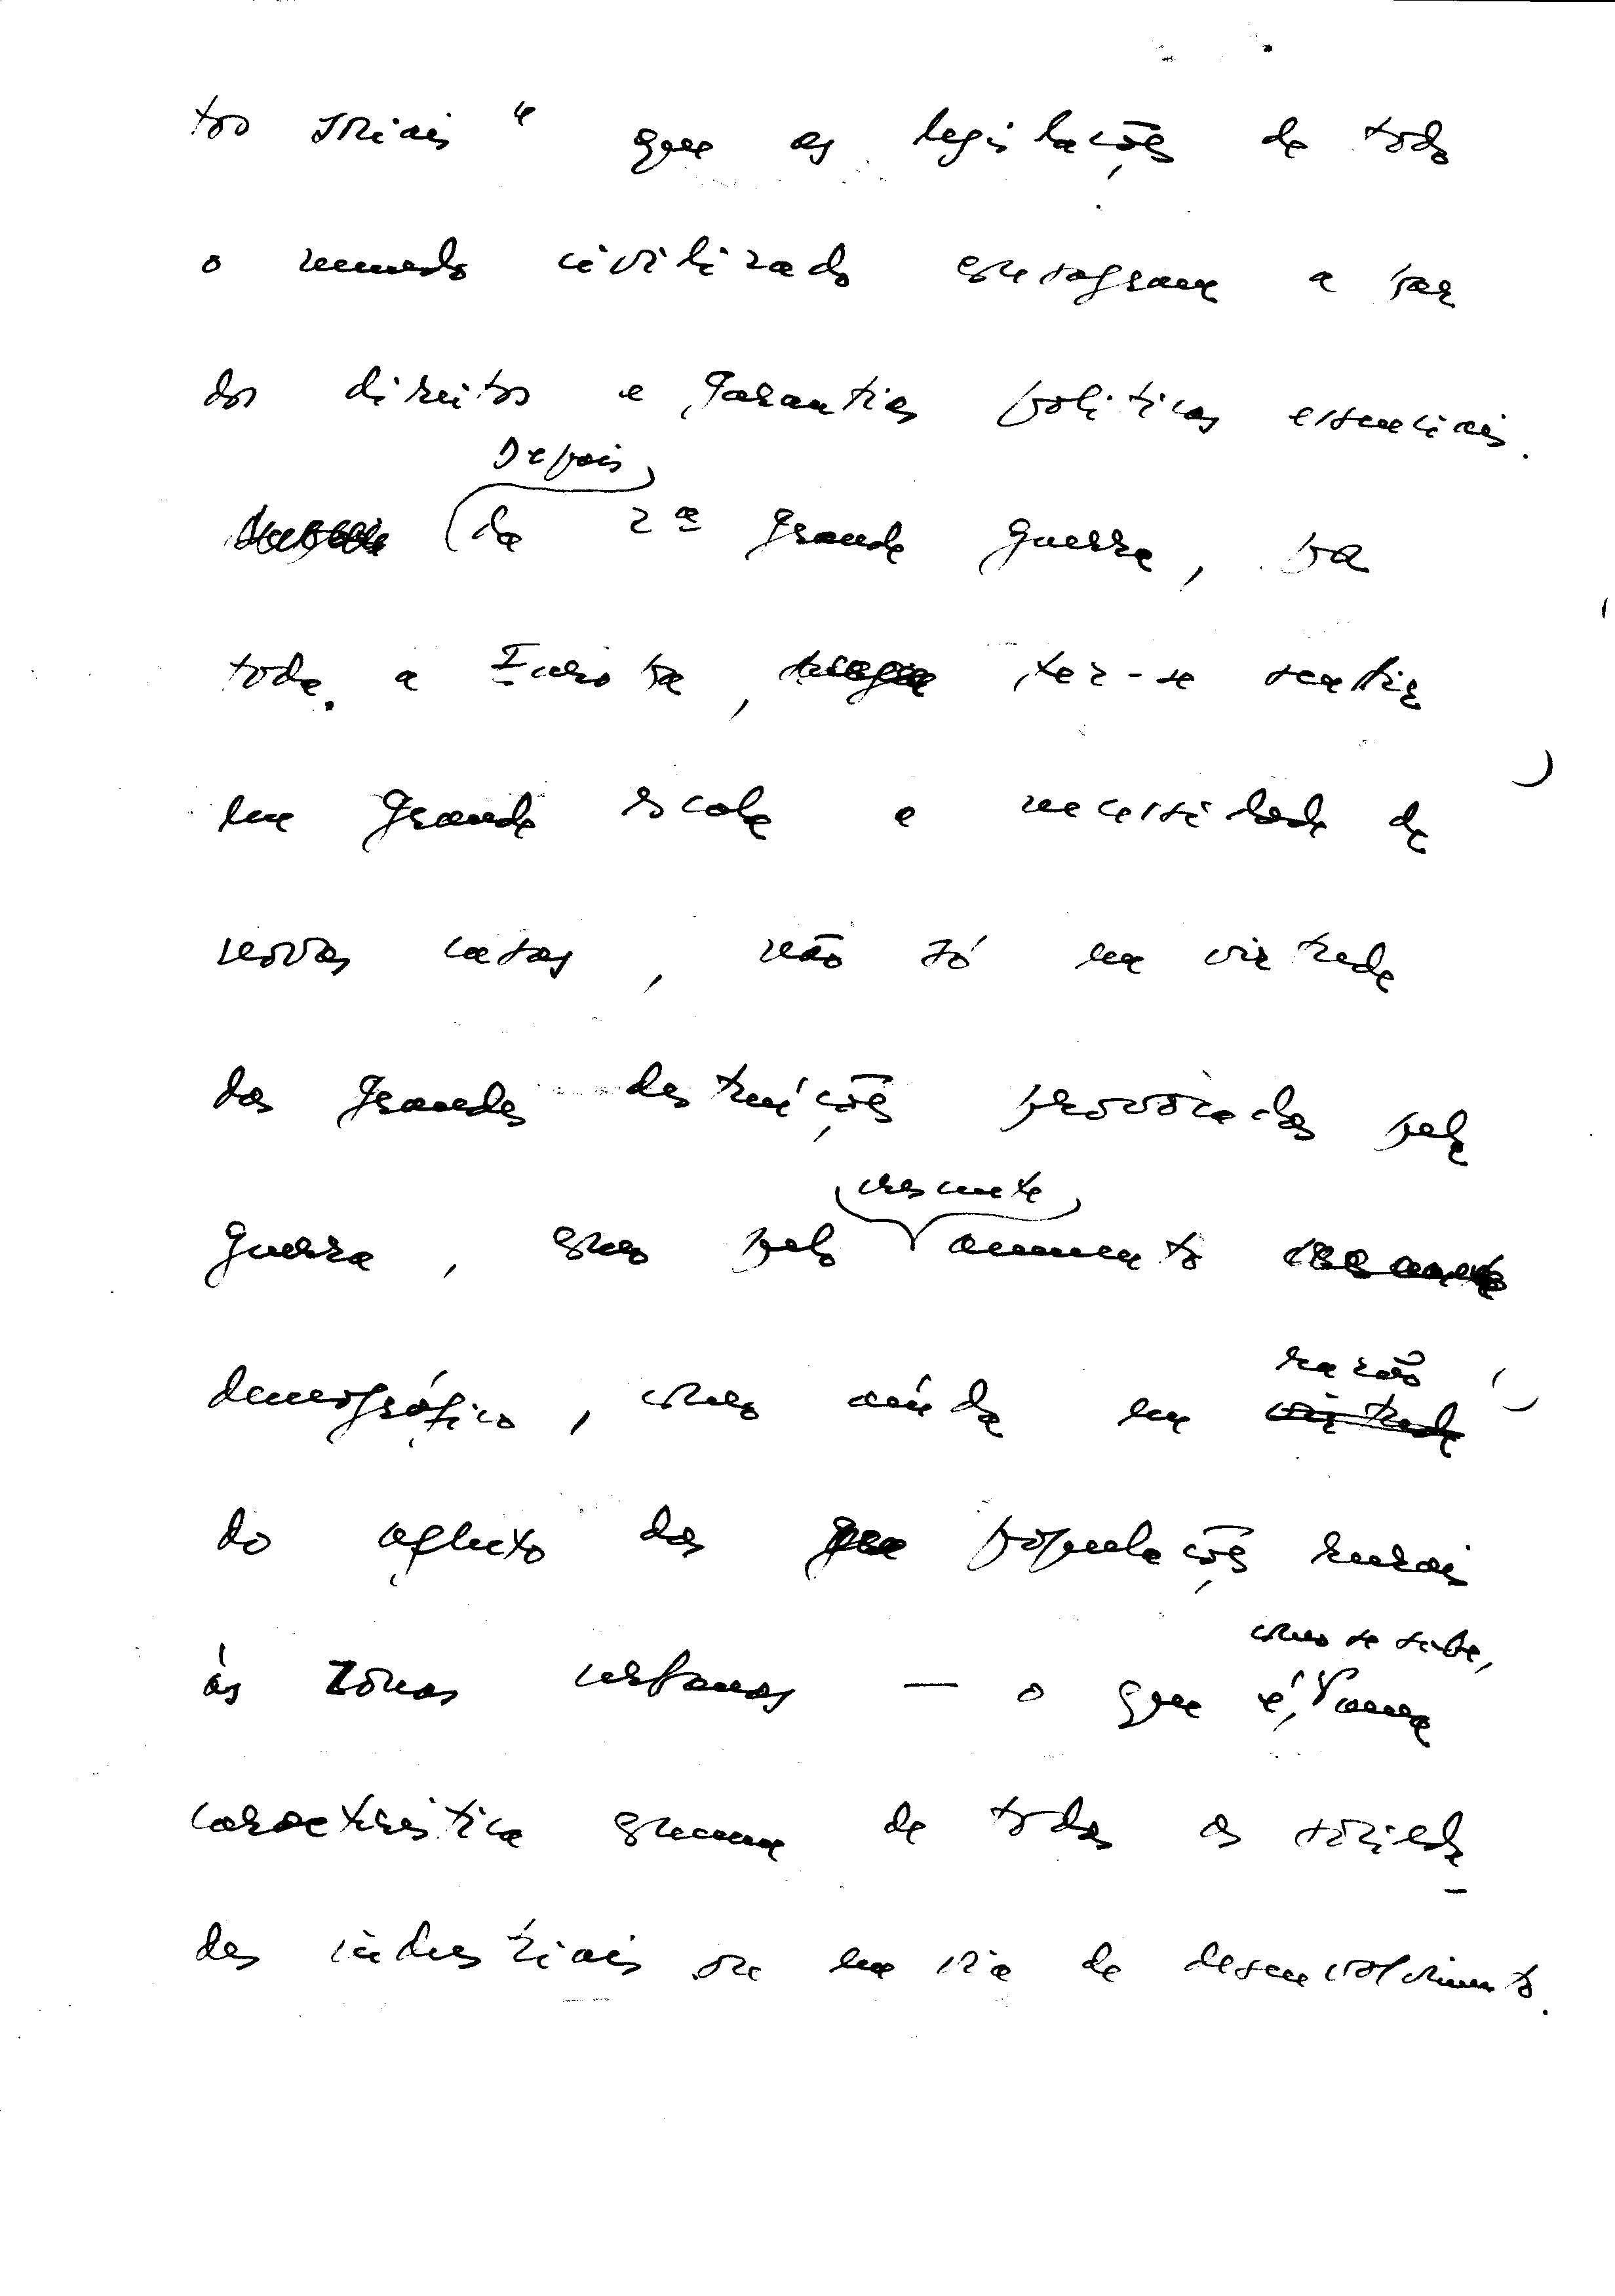 tos sociais" que as legislações de todo
o mundo civilizado consagram a par
dos direitos e garantias políticas essenciais.
Depois
da 2ª grande guerra, por
toda a Europa, fez-se sentir
em grande escala a necessidade de
novas casas, não só em virtude
das grandes destruições provocadas pela
crescente
guerra, como pelo aumento crescente
razão
demográfico, como ainda em virtude
do afluxo das populações rurais
como se sabe,
às zonas urbanas — o que é, uma
característica comum de todas as socieda-
des industriais ou em via de desenvolvimento.